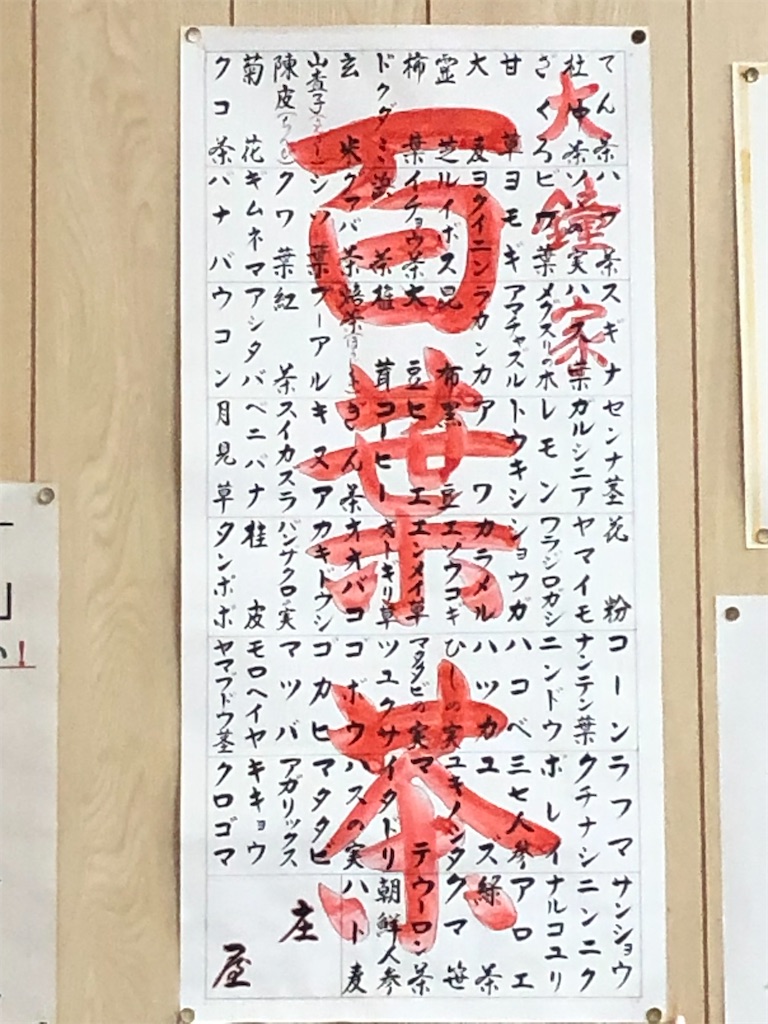 大鐘家
百葉茶
てん茶 ハブ茶 スギナ センナ茎 花粉 コーン ラフマ サンショウ
杜仲茶 ソバの実 ハス葉 ガルシニア ヤマイモ ナンテン葉 クチナシ ニンニク
ざくろ ビワ葉 メグスリの木 レモン ウラジロガシ ニンドウ ボレイ ナルコユリ
甘草 ヨモギ アマチャズル トウキシ ショウガ ハコベ 三七人参 アロエ
大麦 ヨクイニン ラカンカ アワ カラメル ハツカ ユズ 緑茶
霊芝 ルイボス 昆布 黒豆 エゾウコギ ひしの実 ユキノシタ クマ笹
柿葉 イチョウ茶 大豆 ヒエ エンメイ草 マタタビの実 マテ ウーロン茶
ドクダミ 茶 椎茸 コーヒー オトギリ草 ツユクサ イタドリ 朝鮮人参
玄米 グアバ茶 焙茶 ぎん茶 オオバコ ゴボウ ハスの実 ハト麦
山査子 シソ葉 プーアル キヌア カキドウシ ゴカヒ マタタビ
陳皮(ちんぴ) クワ葉 紅茶 スイカズラ バンザクロ実 マツバ アガリックス
菊花 キムネマ アシタバ ベニバナ 桂皮 モロヘイヤ キキョウ
クコ茶 バナバ ウコン 月見草 タンポポ ヤマブドウ茎 クロゴマ
庄屋